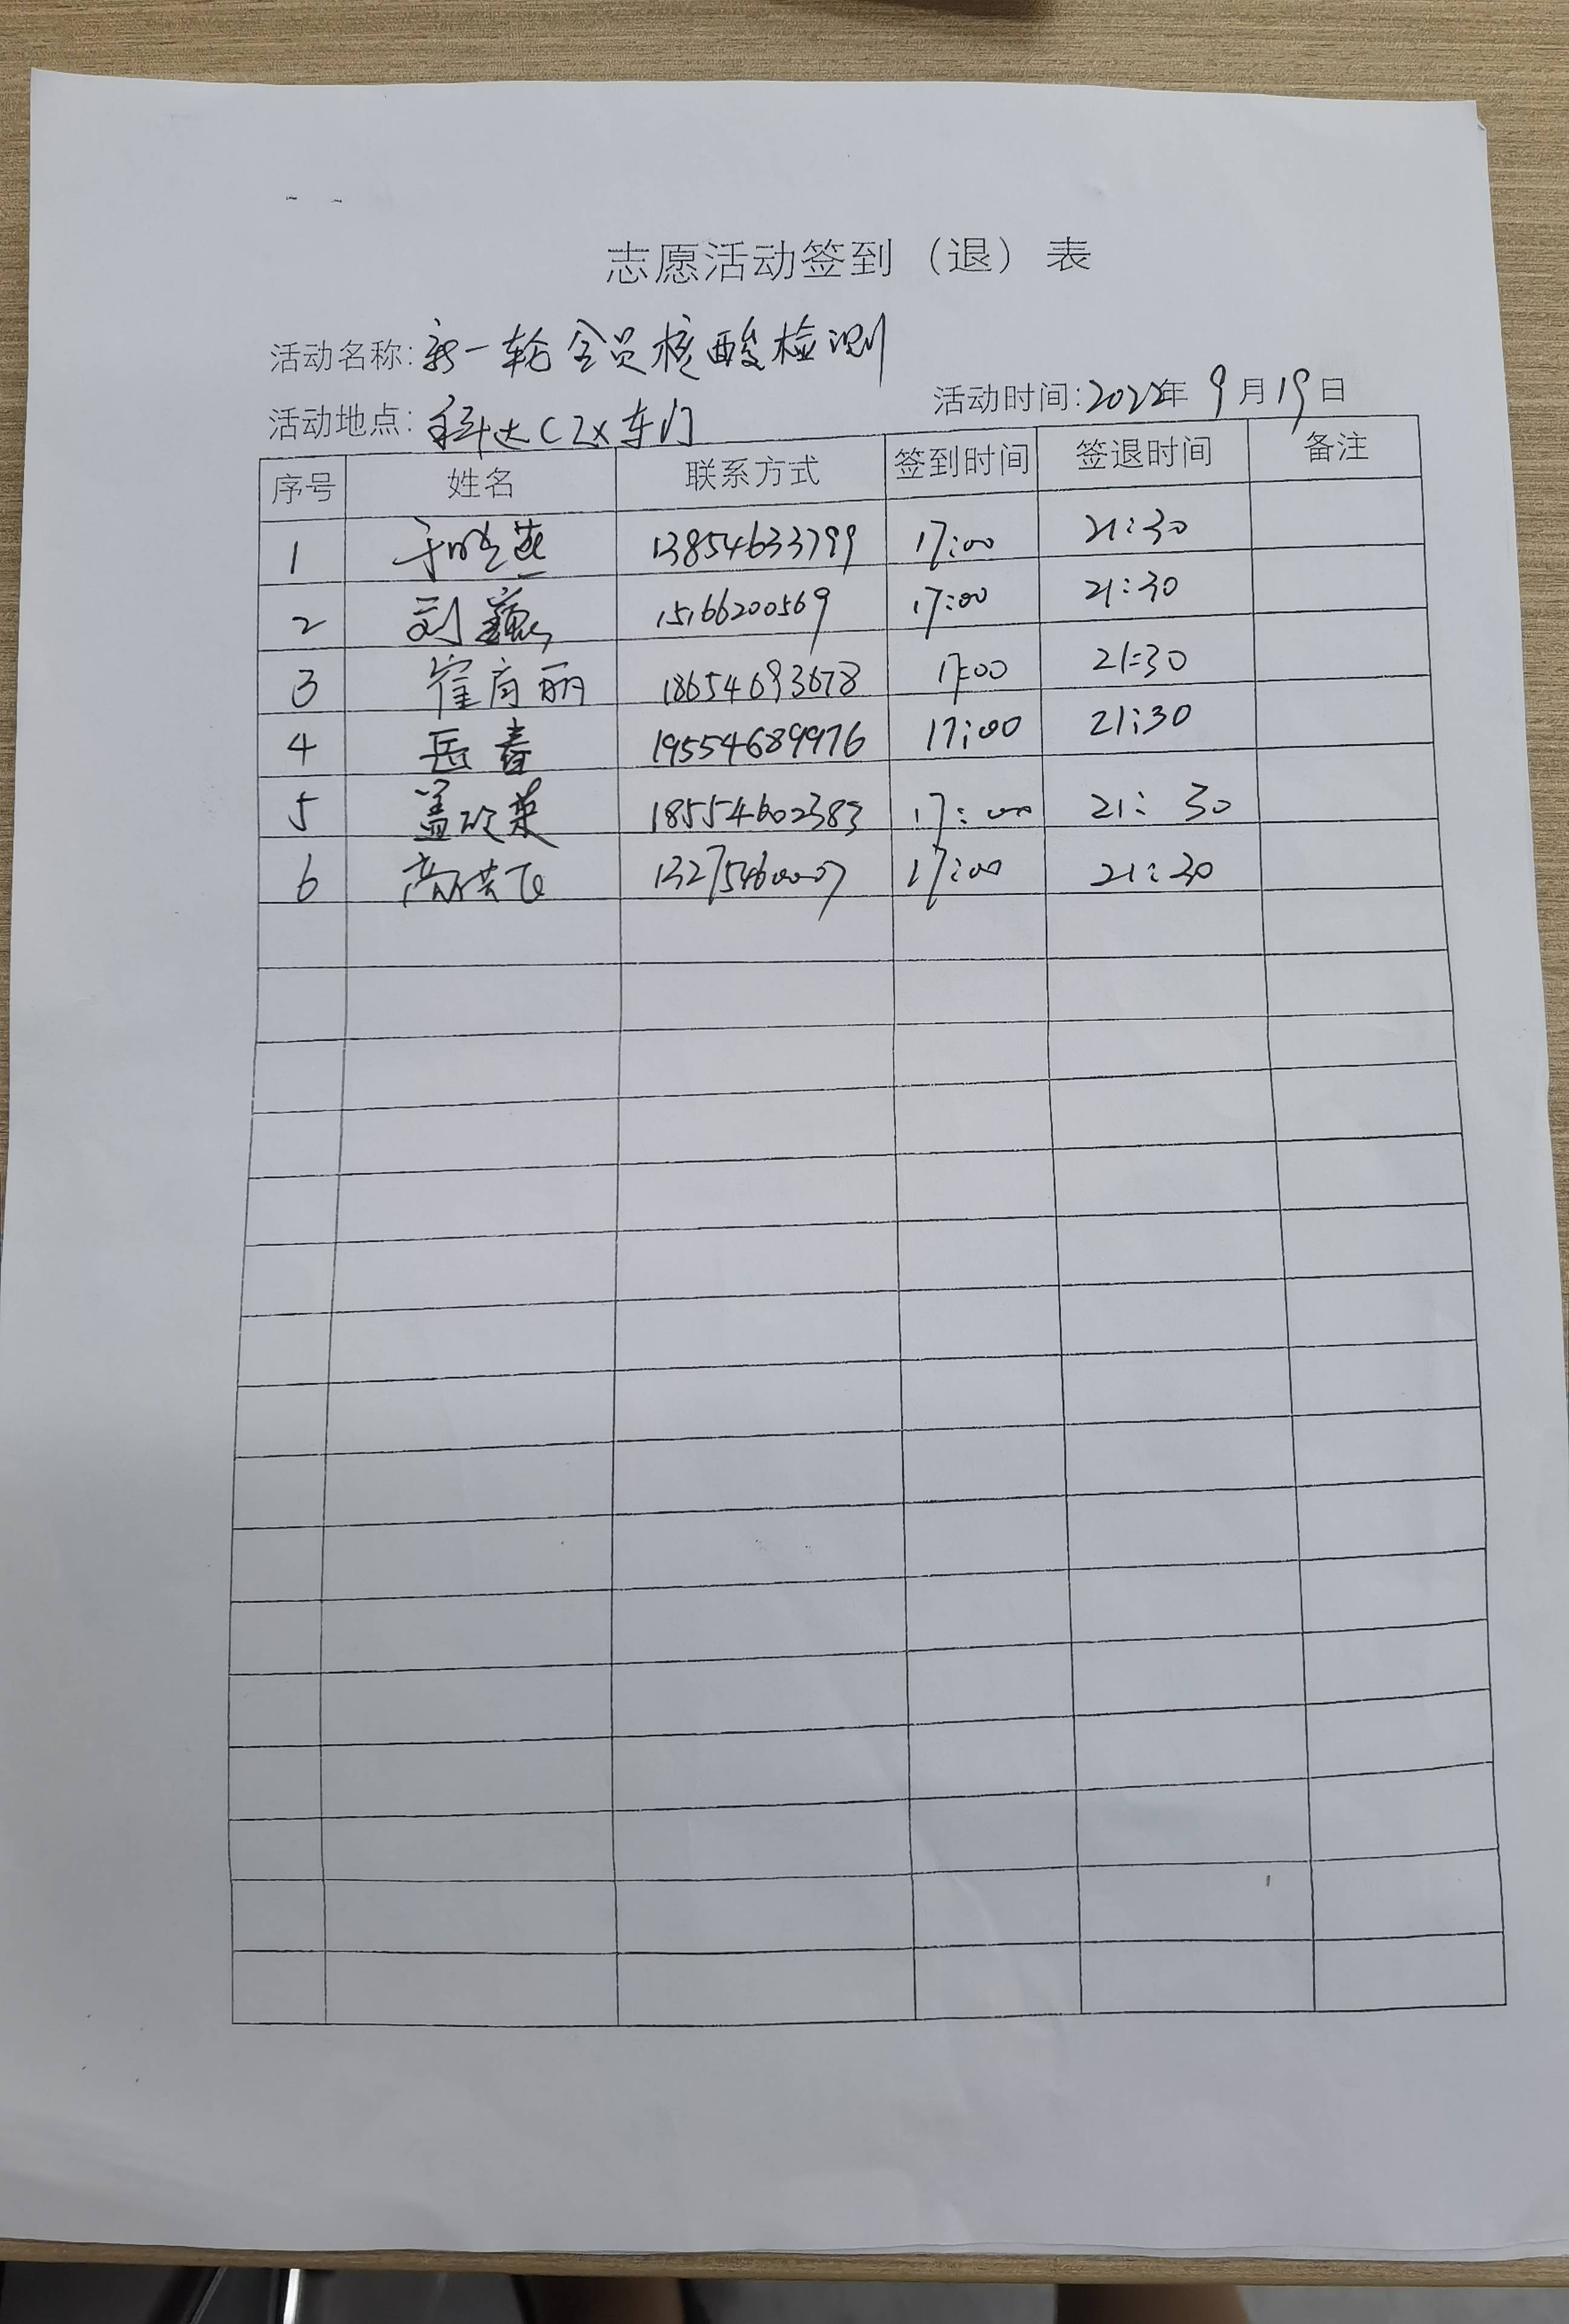 志愿活动签到（退）表
活动名称:新一轮全员核酸检测
活动时间:2022年9月19日
活动地点:科达C区东门
序号 姓名 联系方式 签到时间 签退时间 备注
1 于晓燕 13854633799 17:00 21:30
2 刘巍 15166200569 17:00 21:30
3 崔育丽 18654693678 17:00 21:30
4 岳春 19554689976 17:00 21:30
5 盖 18554602383 17:00 21:30
6 高洪飞 13275460007 17:00 21:30